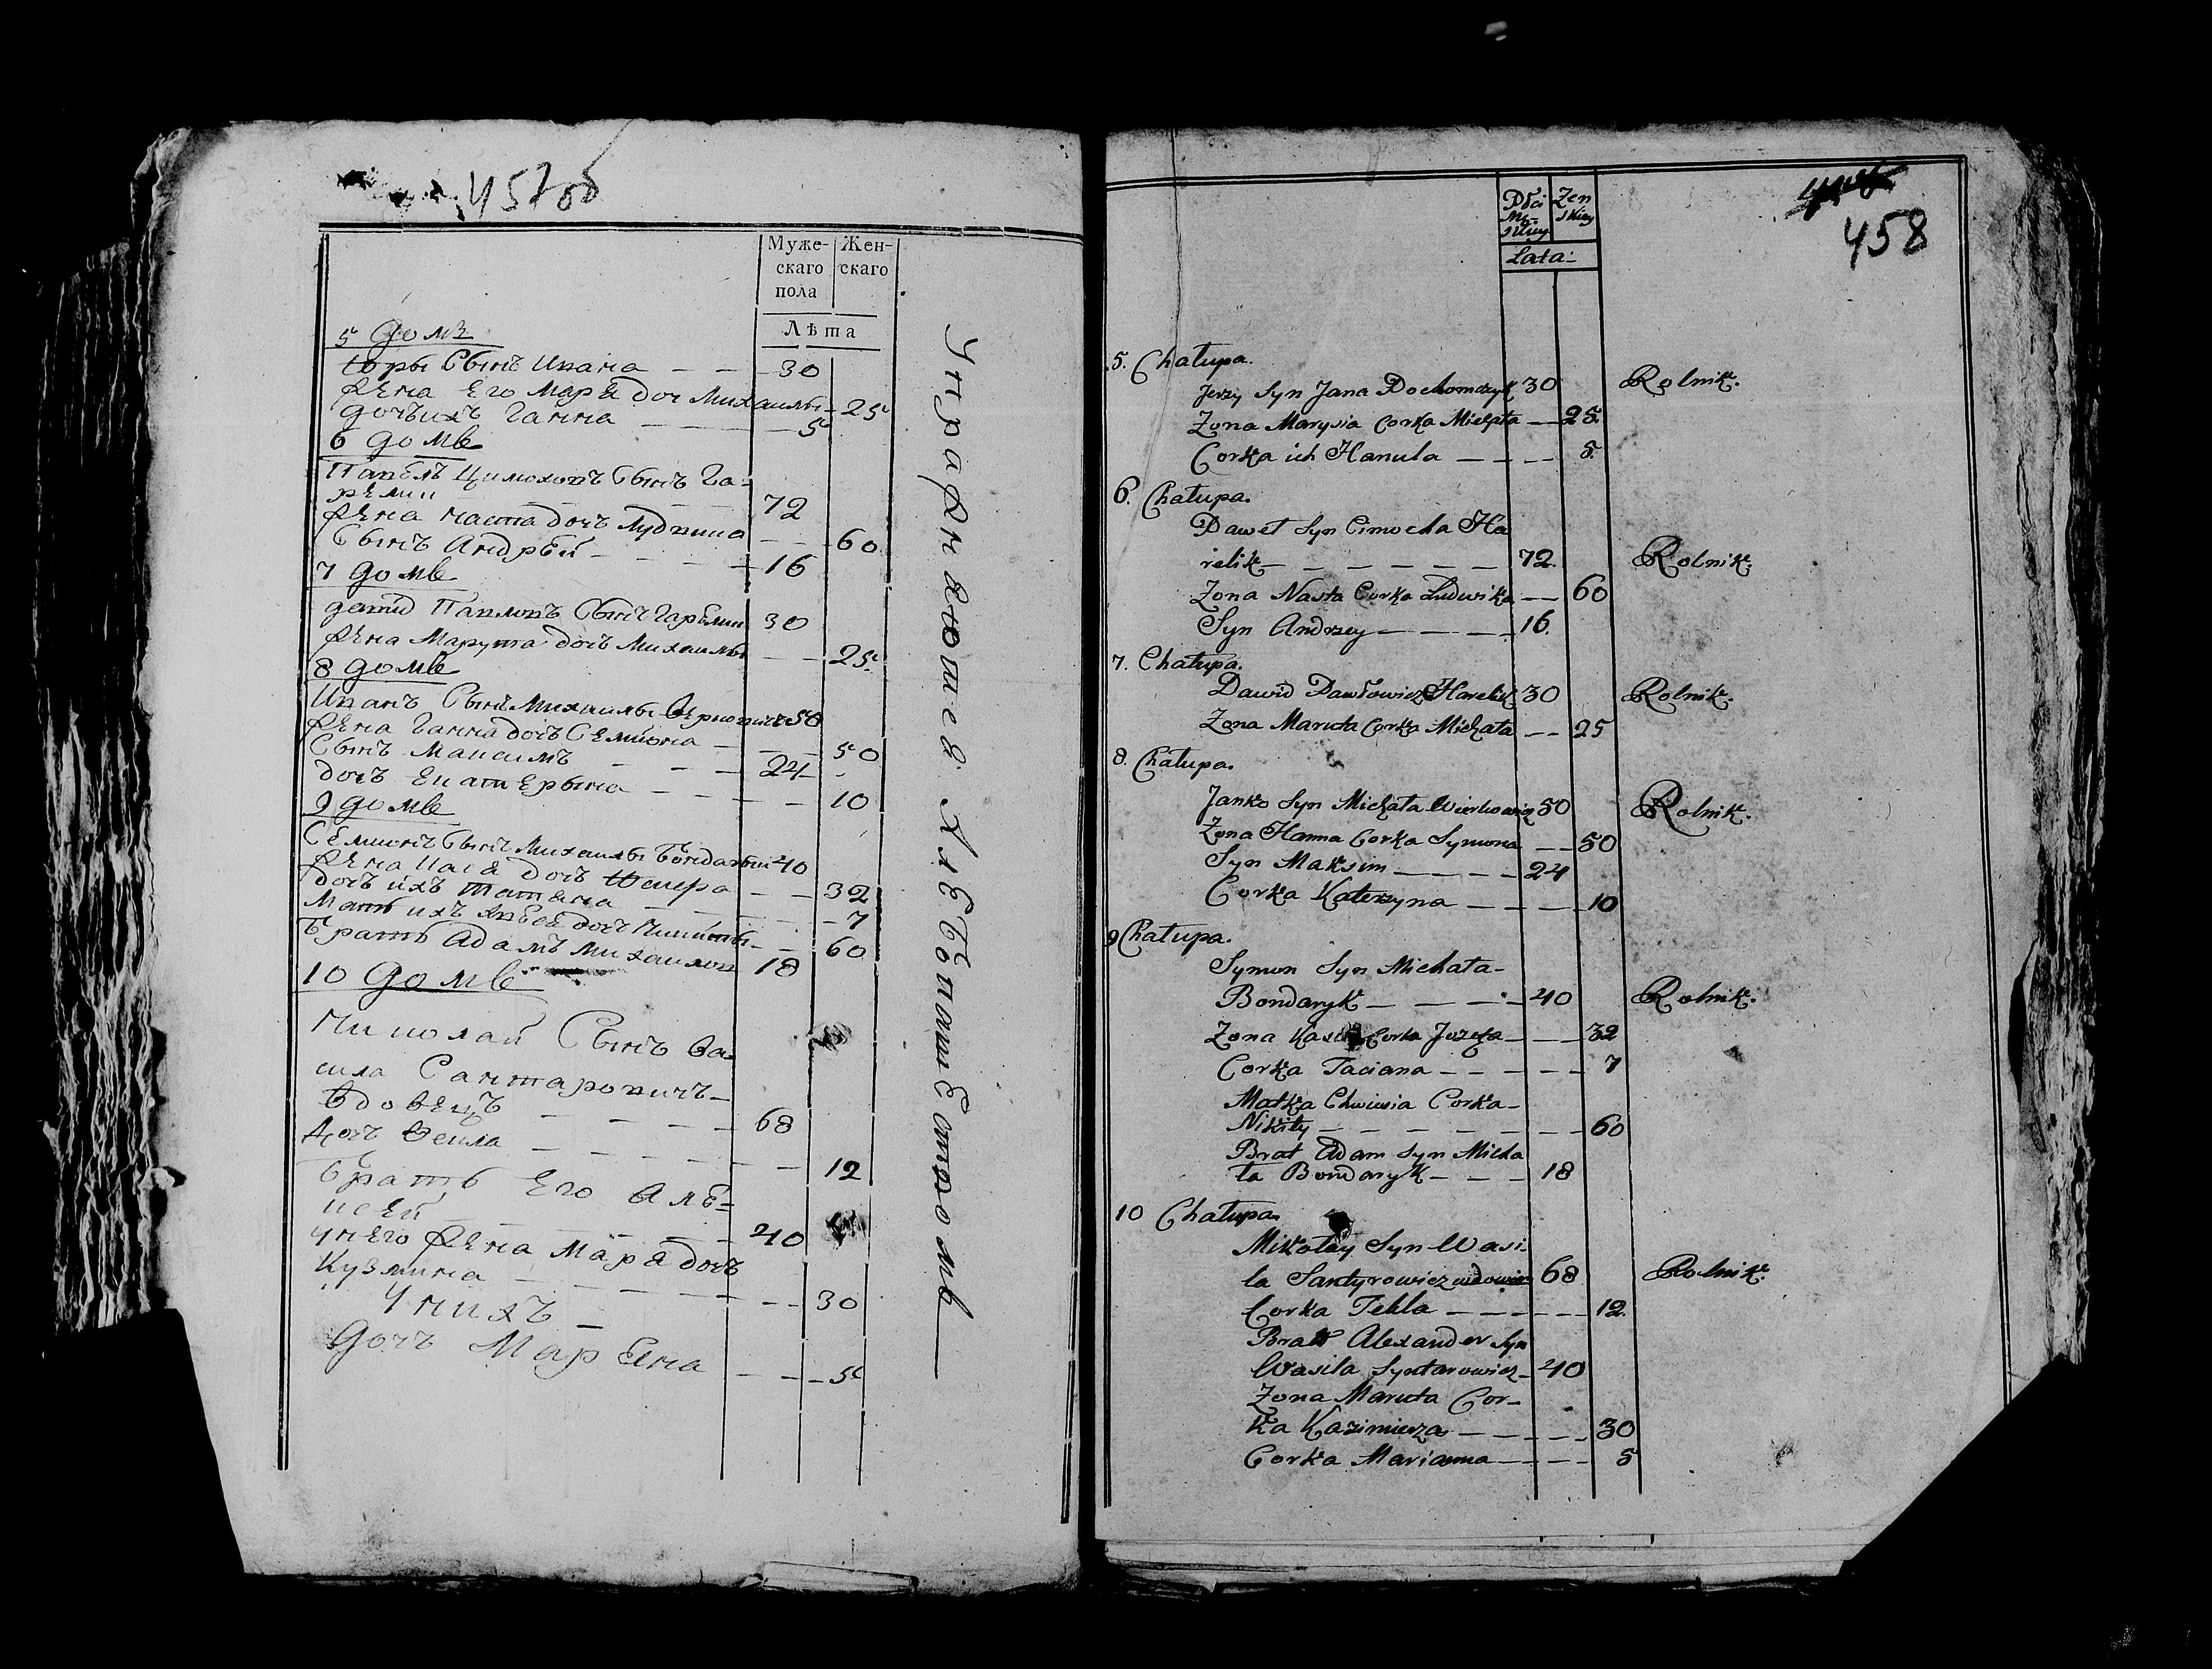 457об
Муже- Жен-
скаго скаго
пола
Лѣта
5 домъ
Юры Сынъ Ивана — — 30
Жена Его Маря доч Михаилы - 25
дочъ ихъ Ганна — 5
6 домъ
Павелъ Цимоховъ Сынъ Га=
релик — 72
Жена Наста дочъ Лудвика — 60
Сынъ Андрей — 16
7 домъ
давид Павловъ Сынъ Гарелик 30
Жена Марута дочъ Михаилы — 25
8 домъ
Иванъ Сынъ Михаилы 50
Жена Ганна дочъ Семиона — 50
Сынъ Максимъ — 24
дочъ Екатерына — 10
9 домъ
Семионъ Сынъ Михаилы Бондарык 40
Жена Кася дочъ — 32
дочъ ихъ Татяна — 7
Мать ихъ дочъ Никиты — 60
Братъ Адамъ Михаилов 18
10 домъ
Николай Сынъ Ва-
сила Сантаровичъ —
Вдовецъ — 68
дочъ Текла — 12
Братъ Его Алѣ=
ксей — 40
у него Жена Маря дочъ
Кузмина — 30
у нихъ —
дочъ Маряна — 5
Упражняются Хлебопашеством
458
Płci Zen
Mę- skiey
skiey
Lata:
5. Chałupa.
Jerzy Syn Jana Dochomczyk 30 Rolnik.
Zona Marysia Corka Michała — 25.
Corka ich Hanula — — — 5.
6. Chałupa.
Paweł Syn Cimocha Ha
relik — — — 72. Rolnik.
Zona Nasta Corka Ludwika — 60
Syn Andrzey — — — 16.
7. Chałupa.
Dawid Pawłowicz Harelik 30 Rolnik.
Zona Maruta Corka Michała — — 25
8. Chałupa.
Janko Syn Michała 50 Rolnik.
Zona Hanna Corka Symona — — 50
Syn Maksim — — — — 24
Corka Katerzyna — — — — 10
9 Chałupa.
Symon Syn Michała -
Bondaryk — — — 40 Rolnik.
Zona Kasia Corka Jozefa — — 32
Corka Taciana — — — 7
Matka Chwiesia Corka -
Nikity — — — — 60
Brat Adam Syn Micha
ła Bondaryk — — — 18
10 Chałupa.
Mikołay Syn Wasi-
la Santyrowicz wdowiec 68 Rolnik.
Corka Tekla — — — — 12.
Brat Alexander Syn
Wasila Syntarowicz — 40
Zona Maruta Cor-
ka Kazimierza — — — — 30
Corka Marianna — — — 5